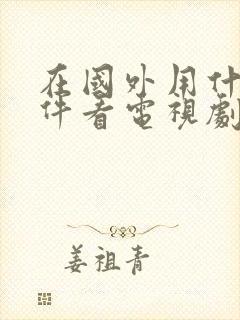 在國外用什
件看電視劇
姜祖青